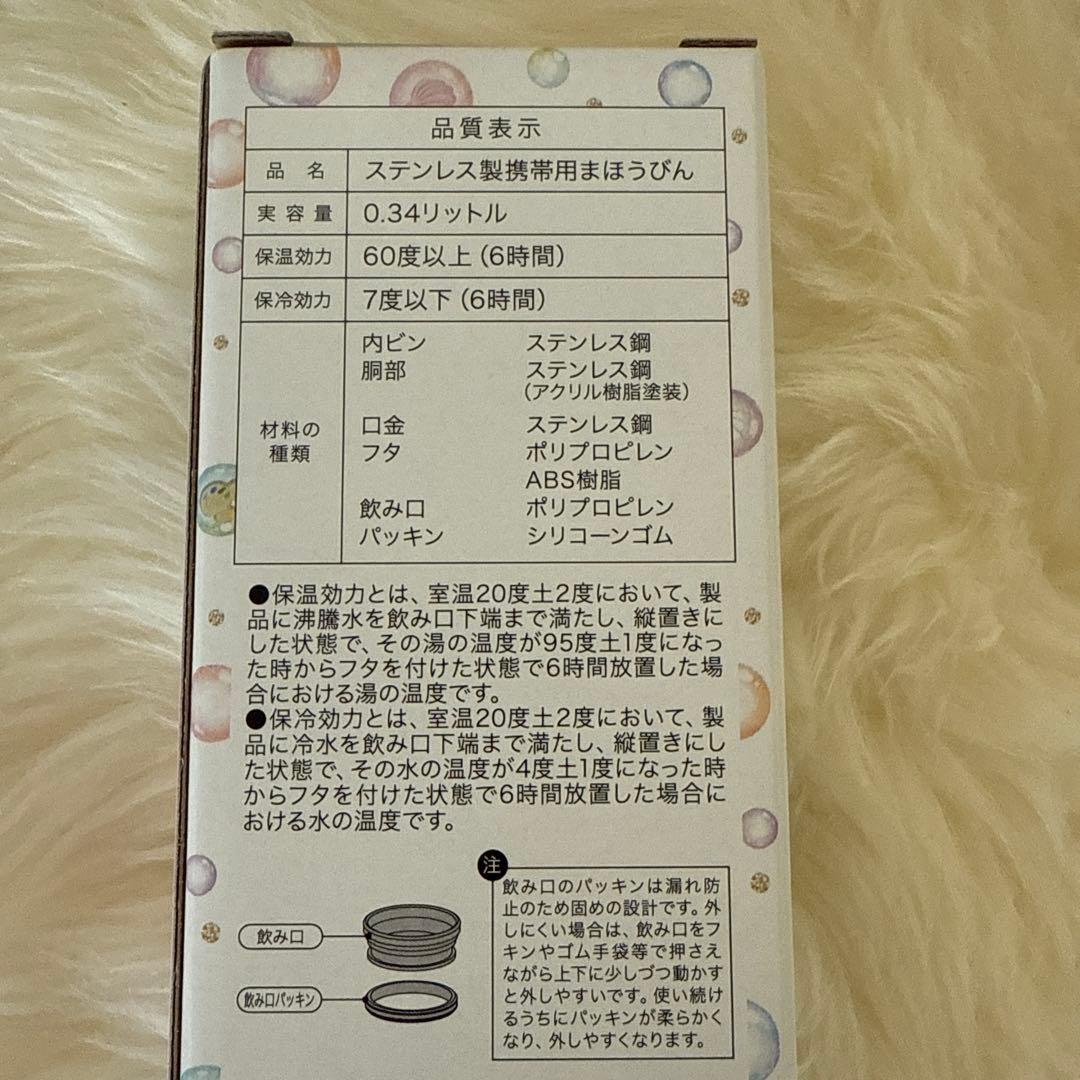 品質表示
品名 ステンレス製携帯用まほうびん
実容量 0.34リットル
保温効力 60度以上(6時間)
保冷効力 7度以下(6時間)
材料の種類
内ビン ステンレス鋼
胴部 ステンレス鋼
(アクリル樹脂塗装)
口金 ステンレス鋼
フタ ポリプロピレン
ABS樹脂
飲み口 ポリプロピレン
パッキン シリコーンゴム
●保温効力とは、室温20度土2度において、製
品に沸騰水を飲み口下端まで満たし、縦置きに
した状態で、その湯の温度が95度土1度になっ
た時からフタを付けた状態で6時間放置した場
合における湯の温度です。
●保冷効力とは、室温20度土2度において、製
品に冷水を飲み口下端まで満たし、縦置きにし
た状態で、その水の温度が4度土1度になった時
からフタを付けた状態で6時間放置した場合に
おける水の温度です。
飲み口
飲み口パッキン
注
飲み口のパッキンは漏れ防
止のため固めの設計です。外
しにくい場合は、飲み口をフ
キンやゴム手袋等で押さえ
ながら上下に少しづつ動かす
と外しやすいです。使い続け
るうちにパッキンが柔らかく
なり、外しやすくなります。